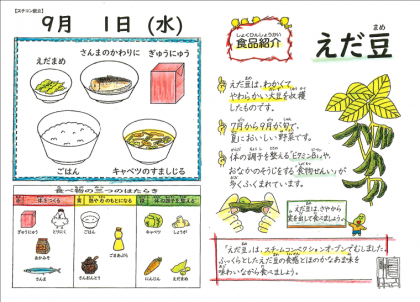 【スチコン献立】
9月 1日(水)
えだまめ
さんまのかわりに
ぎゅうにゅう
ごはん
キャベツのすましじる
食べ物の三つのはたらき
体をつくる
熱や力のもとになる
体の調子を整える
ぎゅうにゅう
とりにく
ごはん
キャベツ
しょうが
あかみそ
こめあぶら
さんま
さんおんとう
にんじん
えだまめ
しょくひんしょうかい
食品紹介
まめ
えだ豆
えだ豆は、わかくて
やわらかい大豆を収穫
したものです。
7月から9月が旬で、
夏においしい野菜です。
体の調子を整える「ビタミンB1」や、
おなかのそうじをする「食物せんい」が
多くふくまれています。
えだ豆は、さやから
実を出して食べましょう。
「えだ豆」は、スチームコンベクションオーブンでむしました。
ふっくらとしたえだ豆の食感とほのかなあま味を
味わいながら食べましょう。